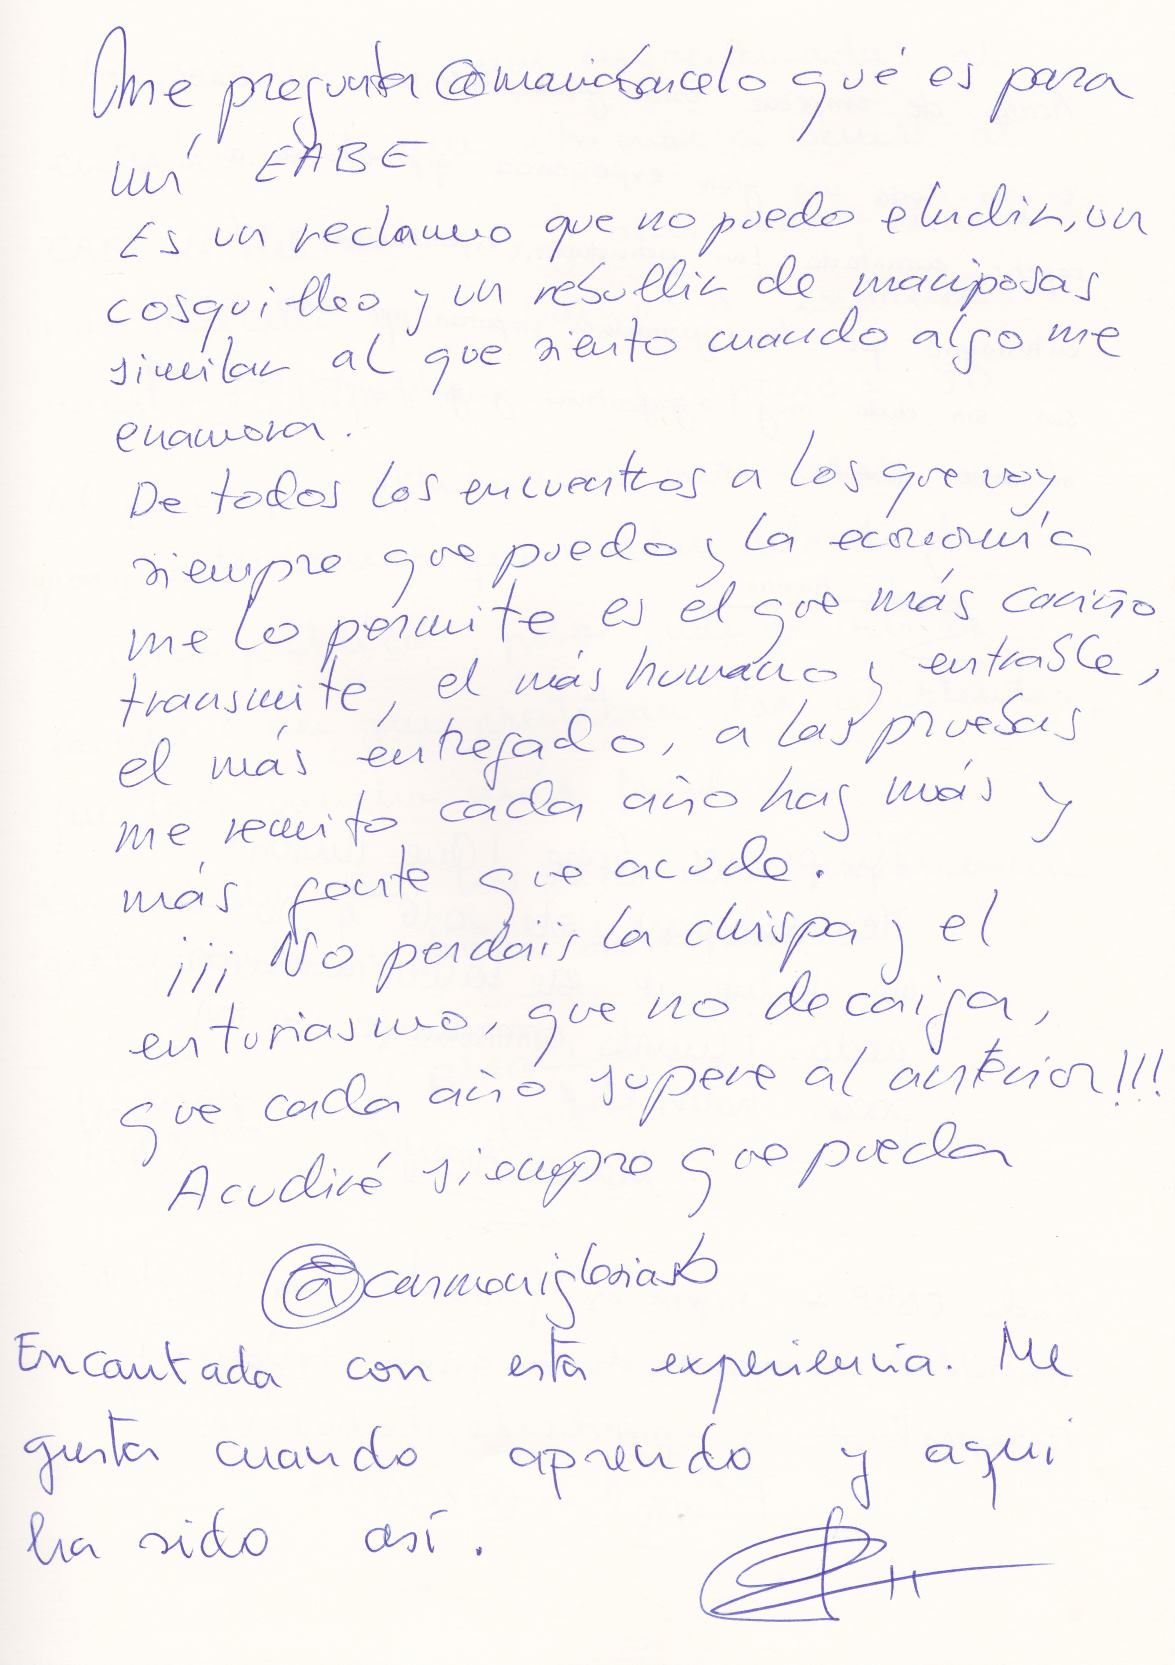 Me pregunta @mariabarcelo qué es para
mí EABE
Es un reclamo que no puedo eludir, un
cosquilleo y un rebullir de mariposas
similar al que siento cuando algo me
enamora.
De todos los encuentros a los que voy
siempre que puedo y la economía
me lo permite es el que más cariño
transmite, el más humano y entrable,
el más entregado, a las pruebas
me remito cada año hay más y
más gente que acude.
¡¡¡ No perdais la chispa y el
enturiasmo, que no decaiga,
que cada año supere al anterior!!!
Acudiré siempre que pueda
@carmeniglesiasb
Encantada con esta experiencia. Me
gusta cuando aprendo y aqui
ha sido así.